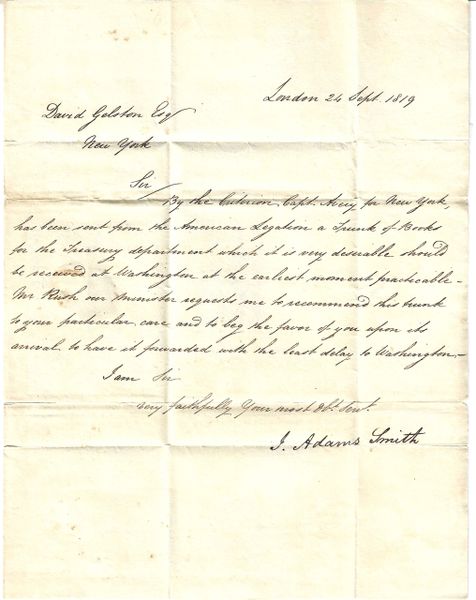 London 24 Sept. 1819
David Gelston Esq
New York
Sir
By the Criterion, Capt. Avery for New York
has been sent from the American Legation a Trunk of Books
for the Treasury department which it is very desirable should
be received at Washington at the earliest moment practicable -
Mr Rush our Minister requests me to recommend this trunk
to your particular care and to beg the favor of you upon its
arrival to have it forwarded with the least delay to Washington. -
I am Sir
very faithfully Your most Obt. Servt.
J. Adams Smith